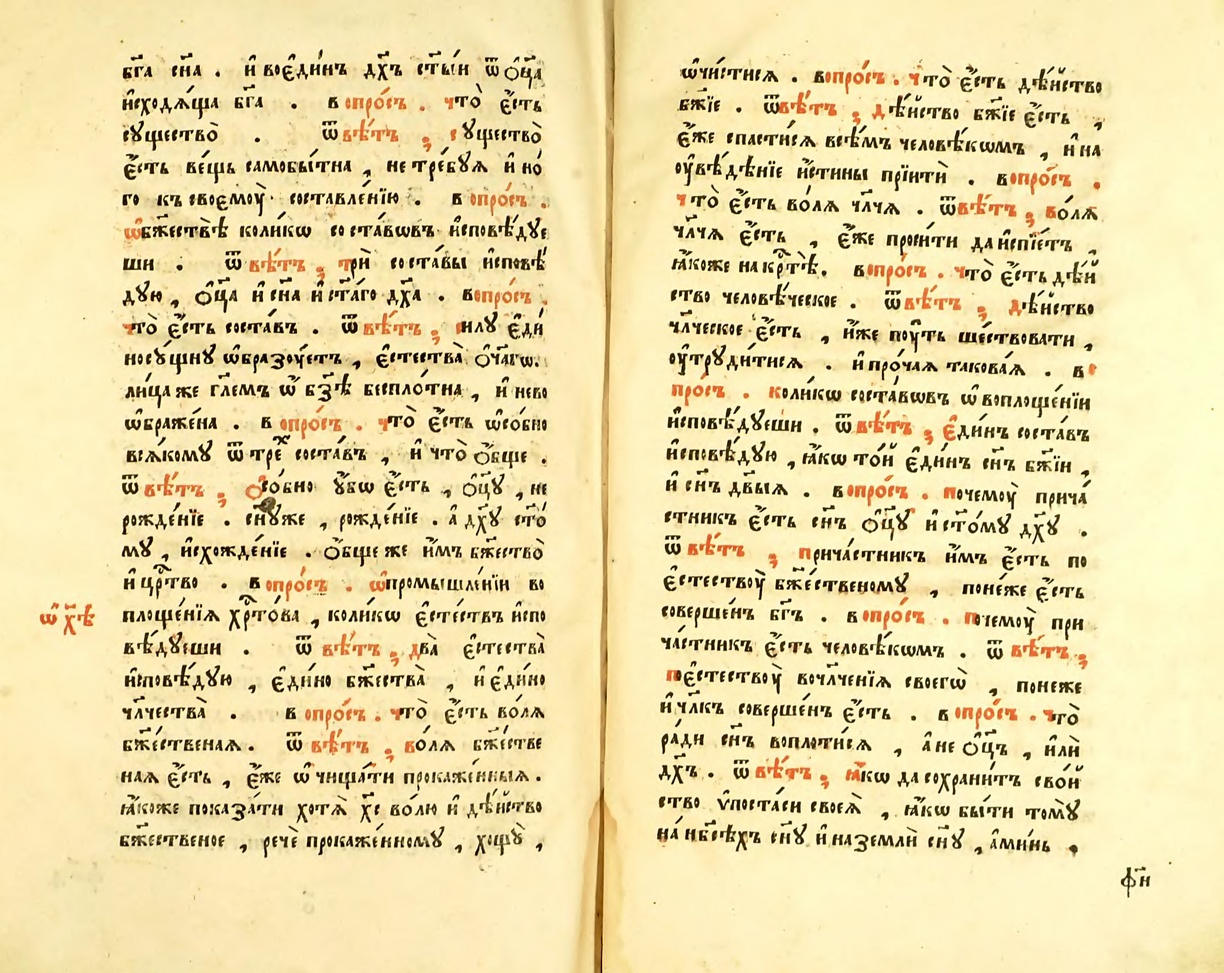 бг҃а сн҃а . и҆ воє҆ди́нъ дх҃ъ ст҃ы́и ѿ ѻ҆ц҃а
и҆сходѧ́ща бг҃а . вопро́съ . что̀ є҆́сть
сꙋщество̀ . ѿвѣ́тъ , сꙋщество̀
є҆́сть ве́щь самобы́тна , не тре́бꙋѧ и҆но
го къ своемоу̀ составле́нїю . вопро́съ .
ѡ҆бж҃ествѣ̀ колико̀ѡ соста́вѡвъ и҆сповѣ́дꙋе
ши . ѿвѣ́тъ , трѝ соста́вы и҆сповѣ́
дꙋю , ѻ҆ц҃а и҆ сн҃а и҆ ст҃а́го дх҃а . вопро́съ .
что̀ є҆́сть соста́въ . ѿвѣ́тъ , силꙋ є҆ди
носꙋ́щнꙋ ѡ҆бразꙋ́етъ , є҆стества̀ ѻ҆́чагѡ .
лица́ же гл҃емъ ѡ҆ бз҃ѣ бесплѡ́тна , и҆ нево
ѡ҆браже́на . вопро́съ . что̀ є҆́сть ѡ҆со́бно
всѧ́комꙋ ѿ тре́х соста́въ , и҆ что̀ ѻ҆́бще .
ѿвѣ́тъ , ѻ҆со́бно ꙋ҆́бѡ є҆́сть , ѻ҆ц҃ꙋ̀ , не
рожде́нїе . сн҃ꙋ́же , рожде́нїе . а҆ дх҃ꙋ ст҃о́
мꙋ , и҆схожде́нїе . ѻ҆́бще же и҆̀мъ бж҃ество̀
и҆ црⷭ҇тво . вопро́съ . ѡ҆промы́шленїи во
ѡ҆ хⷭ҇ѣ
площе́нїѧ хрⷭ҇то́ва , коли́кѡ є҆сте́ствъ и҆спо
вѣ́дꙋеши . ѿвѣ́тъ , два̀ є҆стества̀
и҆сповѣ́дꙋю , є҆ди́но бж҃ества̀ , и҆ є҆ди́но
чл҃чества̀ . вопро́съ . что̀ є҆́сть во́лѧ
бж҃е́ственаѧ . ѿвѣ́тъ , во́лѧ бж҃е́стве
наѧ є҆́сть , є҆́же ѡ҆чища́ти прокаже́нныѧ .
ꙗ҆́коже показа́ти хотѧ̀ хⷭ҇ во́лю и҆ дѣ́йство
бж҃е́ственое , речѐ прокаже́нномꙋ , хощꙋ̀ ,
ѡ҆чи́стисѧ . вопро́съ . что̀ є҆́сть дѣ́йство
бж҃їе . ѿвѣ́тъ , дѣ́йство бж҃їе є҆́сть ,
є҆́же спасти́сѧ всѣ́мъ человѣ́кѡмъ , и҆ на
оу҆вѣ́дѣнїе и҆́стины прїитѝ . вопро́съ .
что̀ є҆́сть во́лѧ чл҃чѧ . ѿвѣ́тъ , во́лѧ
чл҃чѧ є҆́сть , є҆́же проси́ти да и҆спїе́тъ ,
ꙗ҆́коже на крⷭ҇тѣ̀ , вопро́съ . что̀ є҆́сть дѣ́й
ство человѣ́ческое . ѿвѣ́тъ , дѣ́йство
чл҃ческое є҆́сть , и҆́же поуть ше́ствовати ,
оу҆трꙋди́тисѧ . и҆ про́чаѧ такова́ѧ . во
про́съ . коли́кѡ соста́вѡвъ ѡ҆ воплоще́нїи
и҆сповѣ́дꙋеши . ѿвѣ́тъ , є҆ди́нъ соста́въ
и҆сповѣ́дꙋю , ꙗ҆́кѡ то́й є҆ди́нъ сн҃ъ бж҃їи ,
и҆ сн҃ъ дв҃ыѧ . вопро́съ . почемоу̀ прича́
стникъ є҆́сть сн҃ъ ѻ҆ц҃ꙋ и҆ ст҃о́мꙋ дх҃ꙋ .
ѿвѣ́тъ , прича́стникъ и҆̀мъ є҆́сть по
є҆стествоу̀ бж҃е́ственомꙋ , поне́же є҆́сть
соверше́нъ бг҃ъ . вопро́съ . почемоу̀ при
ча́стникъ є҆́сть человѣ́кѡмъ . ѿвѣ́тъ ,
поє҆стествоу̀ вочл҃че́нїѧ своегѡ̀ , поне́же
и҆ чл҃къ соверше́нъ є҆́сть . вопро́съ . что̀
ра́ди сн҃ъ воплоти́сѧ , а҆ не ѻ҆ц҃ъ , и҆лѝ
дх҃ъ . ѿвѣ́тъ , ꙗ҆́кѡ да сохрани́тъ сво́й
ство ѵ҆поста́си своеѧ̀ , ꙗ҆́кѡ бы́ти томꙋ̀
на̀ нб҃сѣ́хъ сн҃ꙋ и҆ на землѝ сн҃ꙋ , а҆ми́нь .
ф҃н